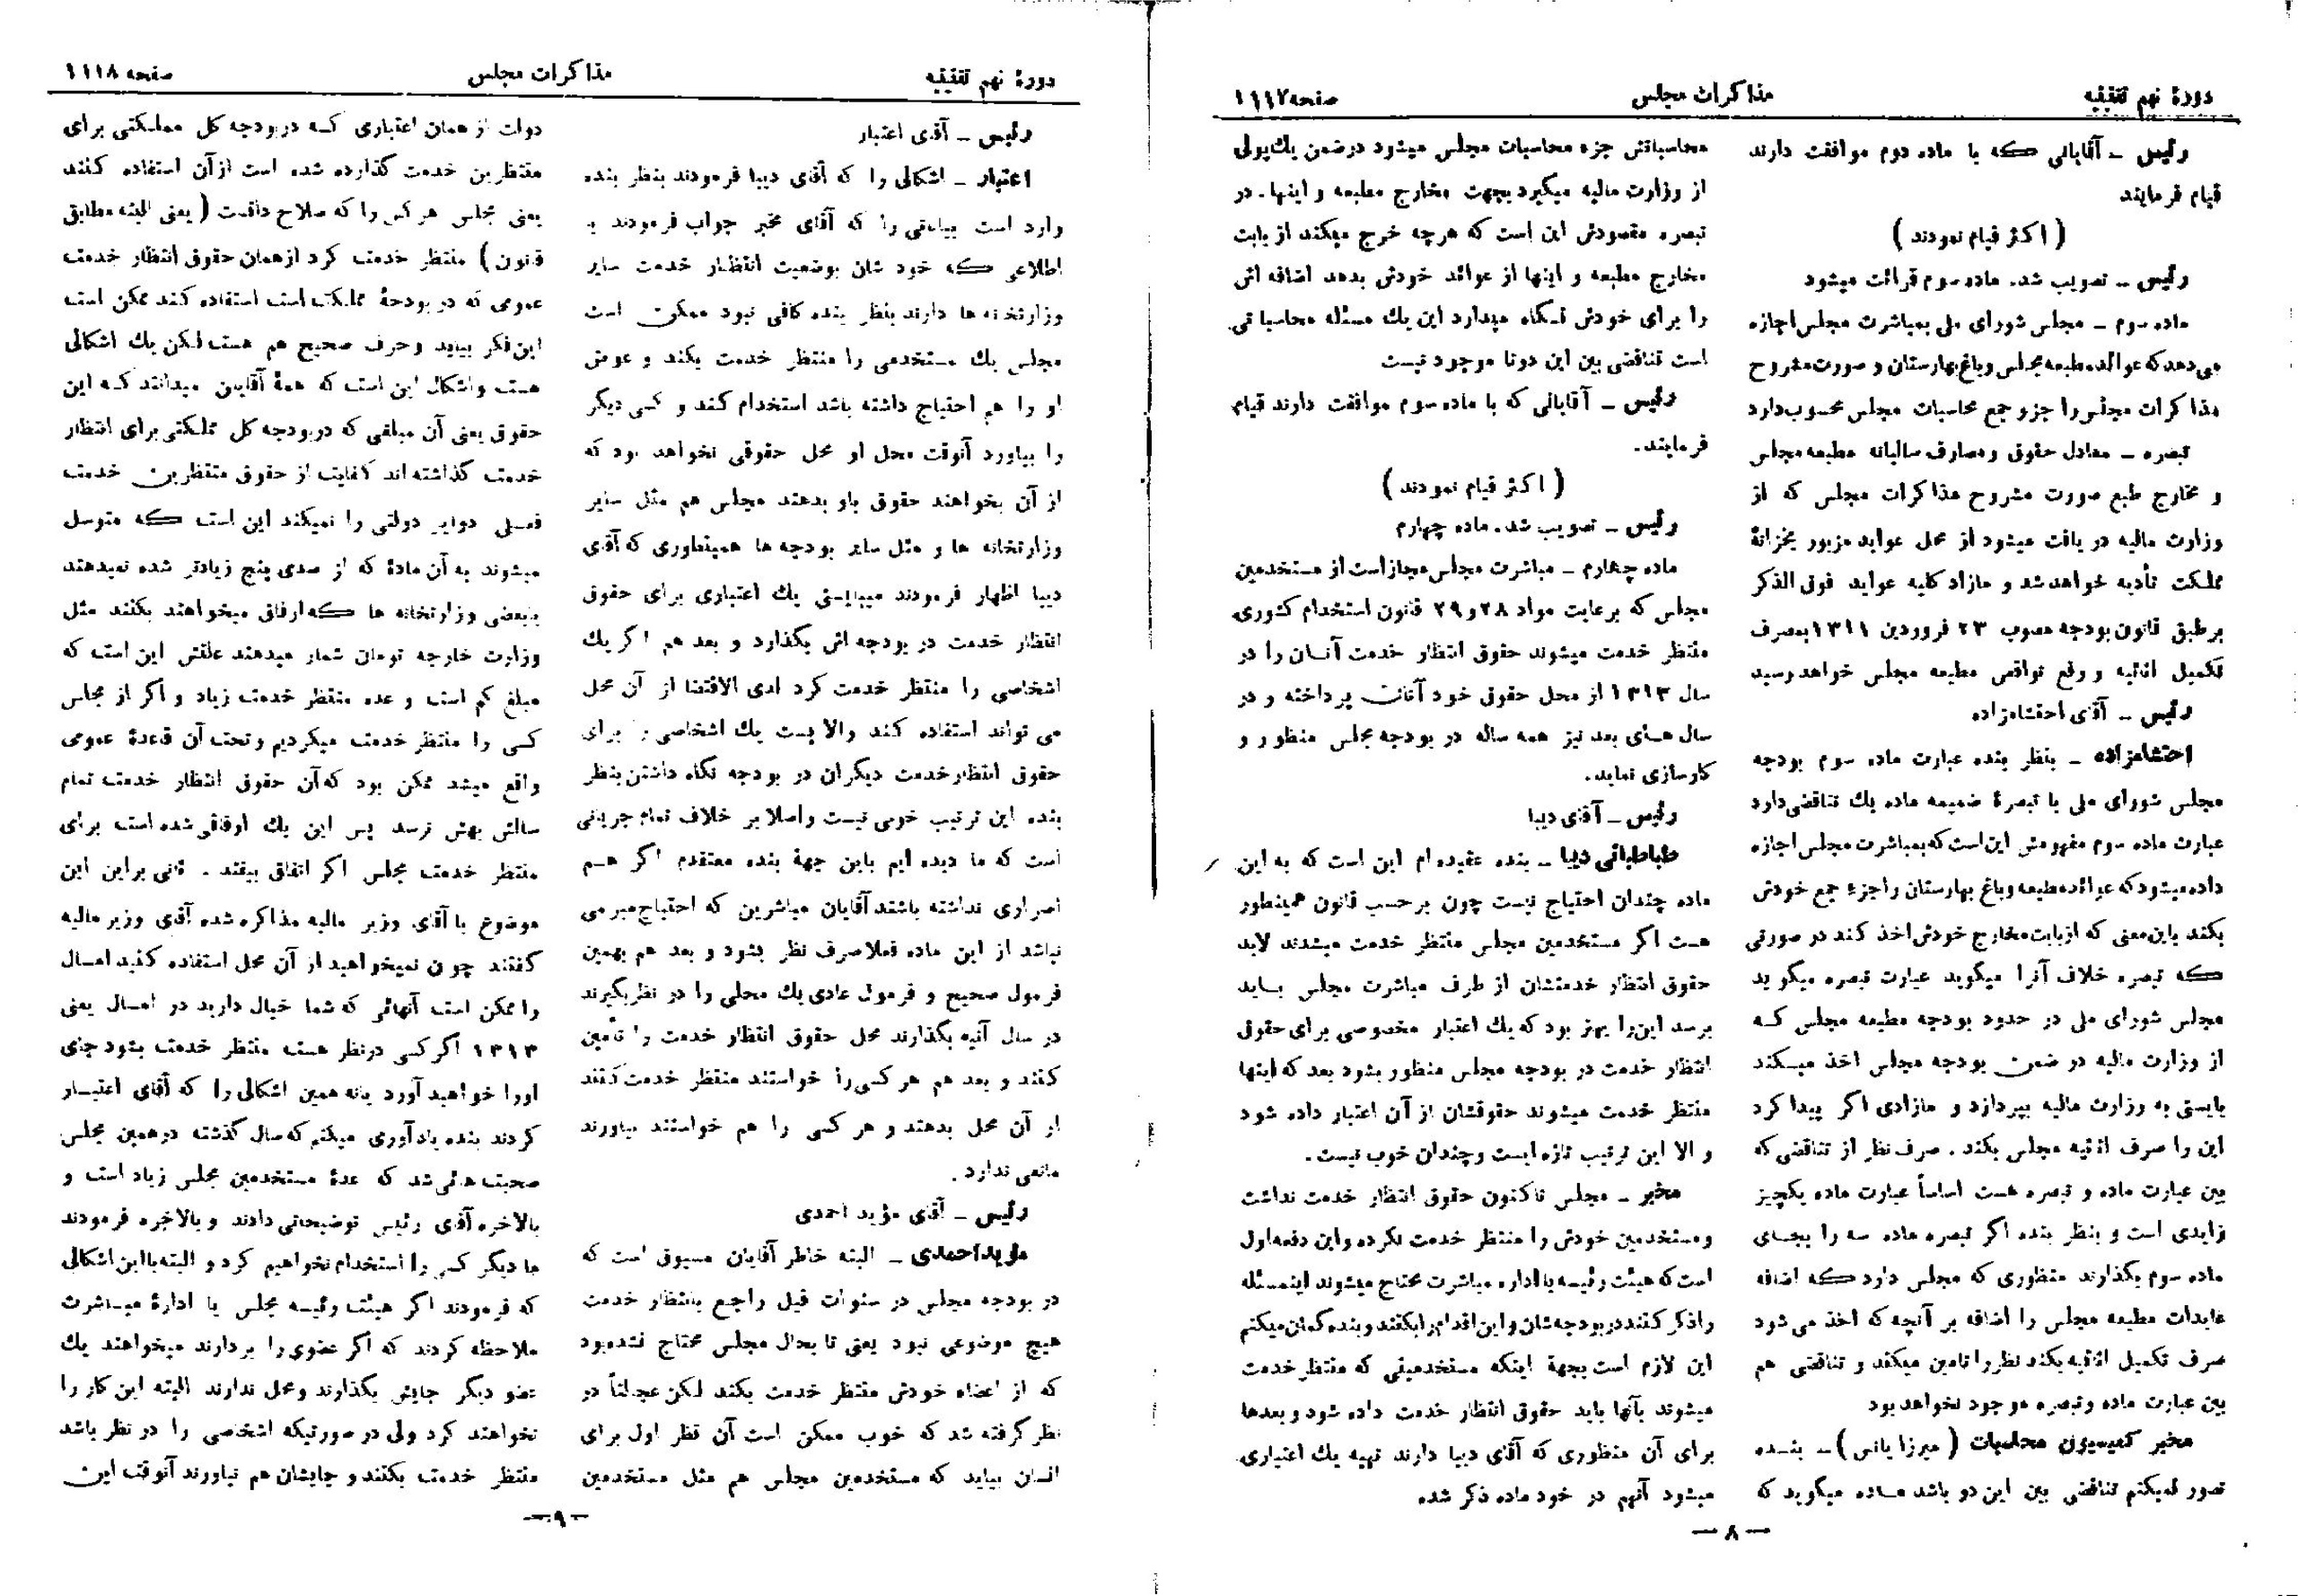 دورهٔ نهم تقنینیه
مذاکرات مجلس
صفحه ۱۱۱۷
رئیس ـ آقایانی که با ماده دوم موافقت دارند
قیام فرمایند
( اکثر قیام نمودند )
رئیس ـ تصویب شد. ماده سوم قرائت میشود
ماده سوم ـ مجلس شورای ملی بمباشرت مجلس اجازه
می‌دهد که عوائد مطبعه مجلس و باغ بهارستان و صورت مشروح
مذاکرات مجلس را جزو جمع محاسبات مجلس محسوب دارد
تبصره ـ معادل حقوق و مصارف سالیانه مطبعه مجلس
و مخارج طبع صورت مشروح مذاکرات مجلس که از
وزارت مالیه دریافت میشود از محل عواید مزبور بخزانهٔ
مملکت تأدیه خواهد شد و مازاد کلیه عواید فوق الذکر
برطبق قانون بودجه مصوب ۲۳ فروردین ۱۳۱۱ بمصرف
تکمیل اثاثیه و رفع نواقص مطبعه مجلس خواهد رسید
رئیس ـ آقای احتشامزاده
احتشامزاده ـ بنظر بنده عبارت ماده سوم بودجه
مجلس شورای ملی با تبصرهٔ ضمیمه ماده یك تناقض دارد
عبارت ماده سوم مفهومش این است که بمباشرت مجلس اجازه
داده میشود که عوائد مطبعه و باغ بهارستان را جزء جمع خودش
بکند باین معنی که از بابت مخارج خودش اخذ کند در صورتی
که تبصره خلاف آنرا میگوید عبارت تبصره میگوید
مجلس شورای ملی در حدود بودجه مطبعه مجلس که
از وزارت مالیه در ضمن بودجه مجلس اخذ میکند
بایستی به وزارت مالیه بپردازد و مازادی اگر پیدا کرد
این را صرف اثاثیه مجلس بکند . صرف نظر از تناقضی که
بین عبارت ماده و تبصره هست اساساً عبارت ماده یکچیز
زایدی است و بنظر بنده اگر تبصره ماده سه را بجای
ماده سوم بگذارند منظوری که مجلس دارد که اضافه
عایدات مطبعه مجلس را اضافه بر آنچه که اخذ می شود
صرف تکمیل اثاثیه بکند نظر را تامین میکند و تناقضی هم
بین عبارت ماده و تبصره موجود نخواهد بود
مخبر کمیسیون محاسبات ( میرزا یانس ) ـ بنده
تصور نمیکنم تناقضی بین این دو باشد ماده میگوید که
محاسباتش جزء محاسبات مجلس میشود در ضمن یك پولی
از وزارت مالیه میگیرد بجهت مخارج مطبعه و اینها . در
تبصره مقصودش این است که هرچه خرج میکند از بابت
مخارج مطبعه و اینها از عوائد خودش بدهد اضافه اش
را برای خودش نگاه میدارد این یك مسئله محاسباتی
است تناقضی بین این دوتا موجود نیست
رئیس ـ آقایانی که با ماده سوم موافقت دارند قیام
فرمایند.
( اکثر قیام نمودند )
رئیس ـ تصویب شد. ماده چهارم
ماده چهارم ـ مباشرت مجلس مجاز است از مستخدمین
مجلس که برعایت مواد ۲۸ و ۲۹ قانون استخدام کشوری
منتظر خدمت میشوند حقوق انتظار خدمت آنان را در
سال ۱۳۱۳ از محل حقوق خود آنان پرداخته و در
سال های بعد نیز همه ساله در بودجه مجلس منظور و
کارسازی نماید.
رئیس ـ آقای دیبا
طباطبائی دیبا ـ بنده عقیده ام این است که به این
ماده چندان احتیاج نیست چون برحسب قانون همینطور
هست اگر مستخدمین مجلس منتظر خدمت میشدند لابد
حقوق انتظار خدمتشان از طرف مباشرت مجلس باید
برسد این را بهتر بود که یك اعتبار مخصوصی برای حقوق
انتظار خدمت در بودجه مجلس منظور بشود بعد که اینها
منتظر خدمت میشوند حقوقشان از آن اعتبار داده شود
و الا این ترتیب تازه ایست و چندان خوب نیست .
مخبر ـ مجلس تاکنون حقوق انتظار خدمت نداشت
و مستخدمین خودش را منتظر خدمت نکرده و این دفعه اول
است که هیئت رئیسه یا اداره مباشرت محتاج میشوند این مسئله
را ذکر کنند در بودجه‌شان و این اقدام را بکنند و بنده گمان میکنم
این لازم است بجهة اینکه مستخدمینی که منتظر خدمت
میشوند بآنها باید حقوق انتظار خدمت داده شود و بعدها
برای آن منظوری که آقای دیبا دارند تهیه یك اعتباری
میشود آنهم در خود ماده ذکر شده
— ۸ —
دورهٔ نهم تقنینیه
مذاکرات مجلس
صفحه ۱۱۱۸
رئیس ـ آقای اعتبار
اعتبار ـ اشکالی را که آقای دیبا فرمودند بنظر بنده
وارد است بیاناتی را که آقای مخبر جواب فرمودند با
اطلاعی که خود شان بوضعیت انتظار خدمت سایر
وزارتخانه ها دارند بنظر بنده کافی نبود ممکن است
مجلس یك مستخدمی را منتظر خدمت بکند و عوض
او را هم احتیاج داشته باشد استخدام کند و کسی دیگر
را بیاورد آنوقت محل او محل حقوقی نخواهد بود که
از آن بخواهند حقوق باو بدهند مجلس هم مثل سایر
وزارتخانه ها و مثل سایر بودجه ها همینطوری که آقای
دیبا اظهار فرمودند میبایستی یك اعتباری برای حقوق
انتظار خدمت در بودجه اش بگذارد و بعد هم اگر یك
اشخاصی را منتظر خدمت کرد لدی الاقتضا از آن محل
می تواند استفاده کند والا پست یك اشخاصی را برای
حقوق انتظار خدمت دیگران در بودجه نگاه داشتن بنظر
بنده این ترتیب خوبی نیست و اصلا بر خلاف تمام جریانی
است که ما دیده ایم باین جهة بنده معتقدم اگر هم
اصراری نداشته باشند آقایان مباشرین که احتیاج مبرمی
نباشد از این ماده فعلا صرف نظر بشود و بعد هم بهمین
فرمول صحیح و فرمول عادی یك محلی را در نظر بگیرند
در سال آتیه بگذارند محل حقوق انتظار خدمت را تأمین
کنند و بعد هم هر کسی را خواستند منتظر خدمت کنند
از آن محل بدهند و هر کسی را هم خواستند بیاورند
مانعی ندارد .
رئیس ـ آقای مؤید احمدی
مؤید احمدی ـ البته خاطر آقایان مسبوق است که
در بودجه مجلس در سنوات قبل راجع بانتظار خدمت
هیچ موضوعی نبود یعنی تا بحال مجلس محتاج نشده بود
که از اعضاء خودش منتظر خدمت بکند لکن عجالتاً در
نظر گرفته شد که خوب ممکن است آن نظر اول برای
انسان بیاید که مستخدمین مجلس هم مثل مستخدمین
دولت از همان اعتباری که در بودجه کل مملکتی برای
منتظرین خدمت گذارده شده است از آن استفاده کنند
یعنی مجلس هر کس را که صلاح دانست ( یعنی البته مطابق
قانون ) منتظر خدمت کرد از همان حقوق انتظار خدمت
عمومی که در بودجهٔ مملکت است استفاده کند ممکن است
این فکر بیاید و حرف صحیح هم هست لکن یك اشکالی
هست و اشکال این است که همهٔ آقایان میدانند که این
حقوق یعنی آن مبلغی که در بودجه کل مملکتی برای انتظار
خدمت گذاشته اند کفایت از حقوق منتظرین خدمت
فعلی دوایر دولتی را نمیکند این است که متوسل
میشوند به آن مادهٔ که از صدی پنج زیادتر شده نمیدهند
ببعضی وزارتخانه ها که ارفاقی میخواهند بکنند مثل
وزارت خارجه تومان شمار میدهند علتش این است که
مبلغ کم است و عده منتظر خدمت زیاد و اگر از مجلس
کسی را منتظر خدمت میکردیم و تحت آن قاعدهٔ عمومی
واقع میشد ممکن بود که آن حقوق انتظار خدمت تمام
سالش بهش نرسد پس این یك ارفاقی شده است برای
منتظر خدمت مجلس اگر اتفاق بیفتد . ثانی براین این
موضوع با آقای وزیر مالیه مذاکره شده آقای وزیر مالیه
گفتند چون نمیخواهید از آن محل استفاده کنید امسال
را ممکن است آنهائی که شما خیال دارید در امسال یعنی
۱۳۱۳ اگر کسی در نظر هست منتظر خدمت بشود جای
او را خواهید آورد یا نه همین اشکالی را که آقای اعتبار
کردند بنده یادآوری میکنم که سال گذشته در همین مجلس
صحبت هائی شد که عدهٔ مستخدمین مجلس زیاد است و
بالاخره آقای رئیس توضیحاتی دادند و بالاخره فرمودند
ما دیگر کسی را استخدام نخواهیم کرد و البته با این اشکالی
که فرمودند اگر هیئت رئیسه مجلس یا ادارهٔ مباشرت
ملاحظه کردند که اگر عضوی را بردارند میخواهند یك
عضو دیگر جایش بگذارند و محل ندارند البته این کار را
نخواهند کرد ولی در صورتیکه اشخاصی را در نظر باشد
منتظر خدمت بکنند و جایشان هم نیاورند آنوقت این
— ۹ —